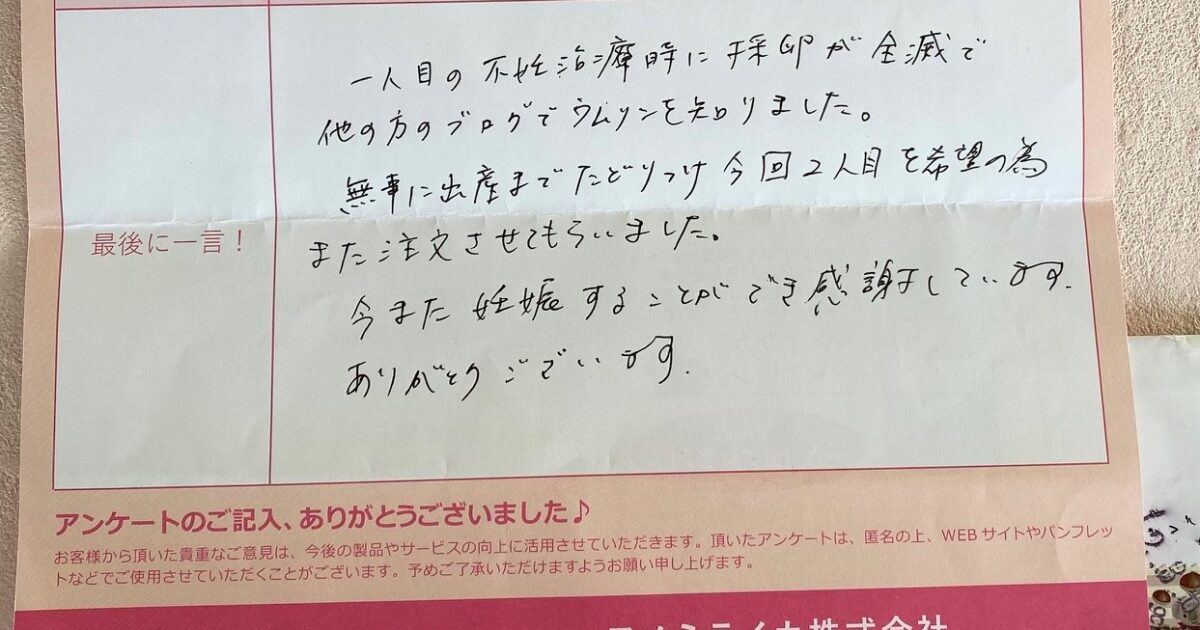 一人目の不妊治療時に採卵が全滅で
他の方のブログでウムリンを知りました。
無事に出産までたどりつけ今回2人目を希望の為
最後に一言！
また注文させてもらいました。
今また妊娠することができ感謝しています.
ありがとうございます.
アンケートのご記入、ありがとうございました♪
お客様から頂いた貴重なご意見は、今後の製品やサービスの向上に活用させていただきます。頂いたアンケートは、匿名の上、WEBサイトやパンフレッ
トなどでご使用させていただくことがございます。予めご了承いただけますようお願い申し上げます。
株式会社